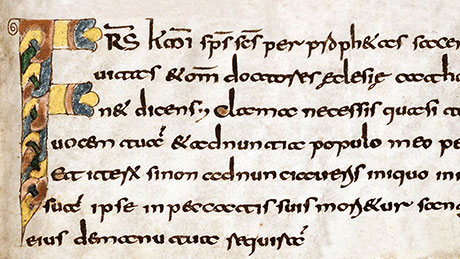 FRS kmi sps scs per prophetas sacer
uitates & om doctores ecclesię catho
ne dicens; Clama ne cessis quasi t
uocem tua & adnuntia populo meo pe
Et iter si non adnunciaueris iniquo ini
sua ipse in peccatis suis moritur san
eius de manu tua requira